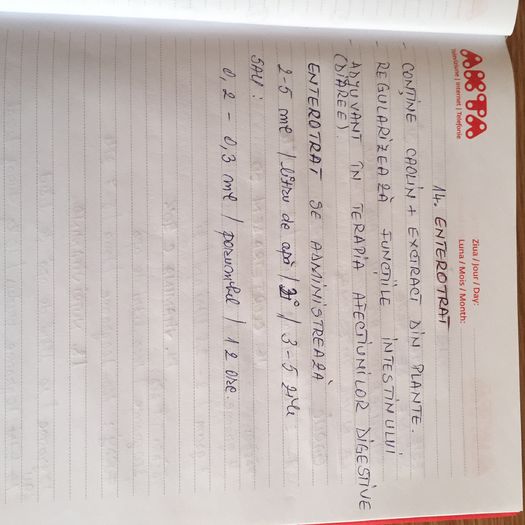 AKTA
Televiziune | Internet | Telefonie
Ziua / Jour / Day:
Luna / Mois / Month:
14. ENTEROTRAT
- CONȚINE CAOLIN + EXTRACT DIN PLANTE.
- REGULARIZEAZĂ FUNCȚIILE INTESTINULUI
- ADJUVANT ÎN TERAPIA AFECȚIUNILOR DIGESTIVE
(DIAREE).
ENTEROTRAT SE ADMINISTREAZĂ
2-5 ml / litru de apă / zi / 3-5 zile
SAU:
0,2 - 0,3 ml / porumbel / 12 ore.